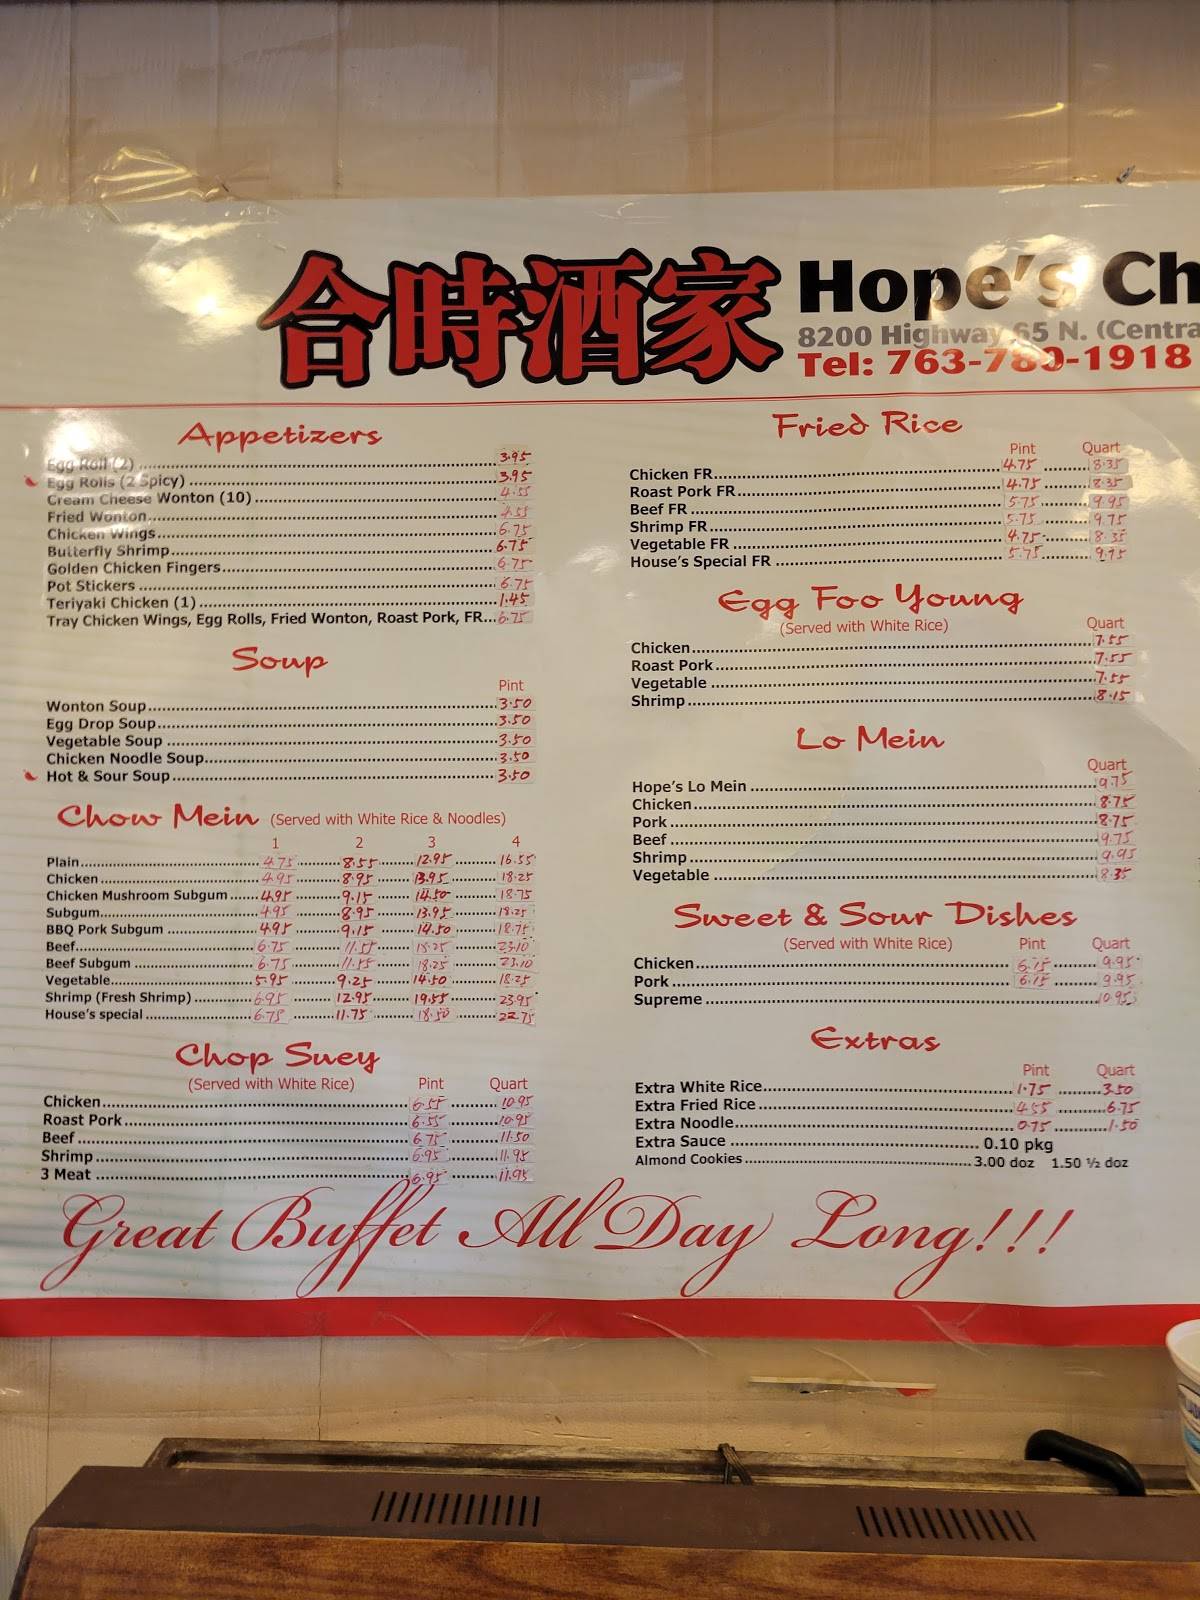 合時酒家
Hope's Ch
8200 Highway 65 N. (Centra
Tel: 763-780-1918
Appetizers
Egg Roll (2) 3.95
Egg Rolls (2 Spicy) 3.95
Cream Cheese Wonton (10) 4.55
Fried Wonton 4.55
Chicken Wings 6.75
Butterfly Shrimp 6.75
Golden Chicken Fingers 6.75
Pot Stickers 6.75
Teriyaki Chicken (1) 1.45
Tray Chicken Wings, Egg Rolls, Fried Wonton, Roast Pork, FR... 6.75
Soup
Pint
Wonton Soup 3.50
Egg Drop Soup 3.50
Vegetable Soup 3.50
Chicken Noodle Soup 3.50
Hot & Sour Soup 3.50
Chow Mein (Served with White Rice & Noodles)
1 2 3 4
Plain 4.75 8.55 12.95 16.55
Chicken 4.95 8.95 13.95 18.25
Chicken Mushroom Subgum 4.95 9.15 14.50 18.75
Subgum 4.95 8.95 13.95 18.25
BBQ Pork Subgum 4.95 9.15 14.50 18.75
Beef 6.75 11.55 18.25 23.10
Beef Subgum 6.75 11.55 18.25 23.10
Vegetable 5.95 9.25 14.50 18.25
Shrimp (Fresh Shrimp) 6.95 12.95 19.55 23.95
House's special 6.75 11.75 18.50 22.75
Chop Suey
(Served with White Rice) Pint Quart
Chicken 6.55 10.95
Roast Pork 6.55 10.95
Beef 6.75 11.50
Shrimp 6.95 11.95
3 Meat 6.95 11.95
Fried Rice
Pint Quart
Chicken FR 4.75 8.35
Roast Pork FR 4.75 8.35
Beef FR 5.75 9.95
Shrimp FR 5.75 9.75
Vegetable FR 4.75 8.35
House's Special FR 5.75 9.75
Egg Foo Young
(Served with White Rice) Quart
Chicken 7.55
Roast Pork 7.55
Vegetable 7.55
Shrimp 8.15
Lo Mein
Quart
Hope's Lo Mein 9.75
Chicken 8.75
Pork 8.75
Beef 9.75
Shrimp 9.95
Vegetable 8.35
Sweet & Sour Dishes
(Served with White Rice) Pint Quart
Chicken 6.15 9.95
Pork 6.15 9.95
Supreme 10.95
Extras
Pint Quart
Extra White Rice 1.75 3.50
Extra Fried Rice 4.55 6.75
Extra Noodle 0.75 1.50
Extra Sauce 0.10 pkg
Almond Cookies 3.00 doz 1.50 ½ doz
Great Buffet All Day Long!!!